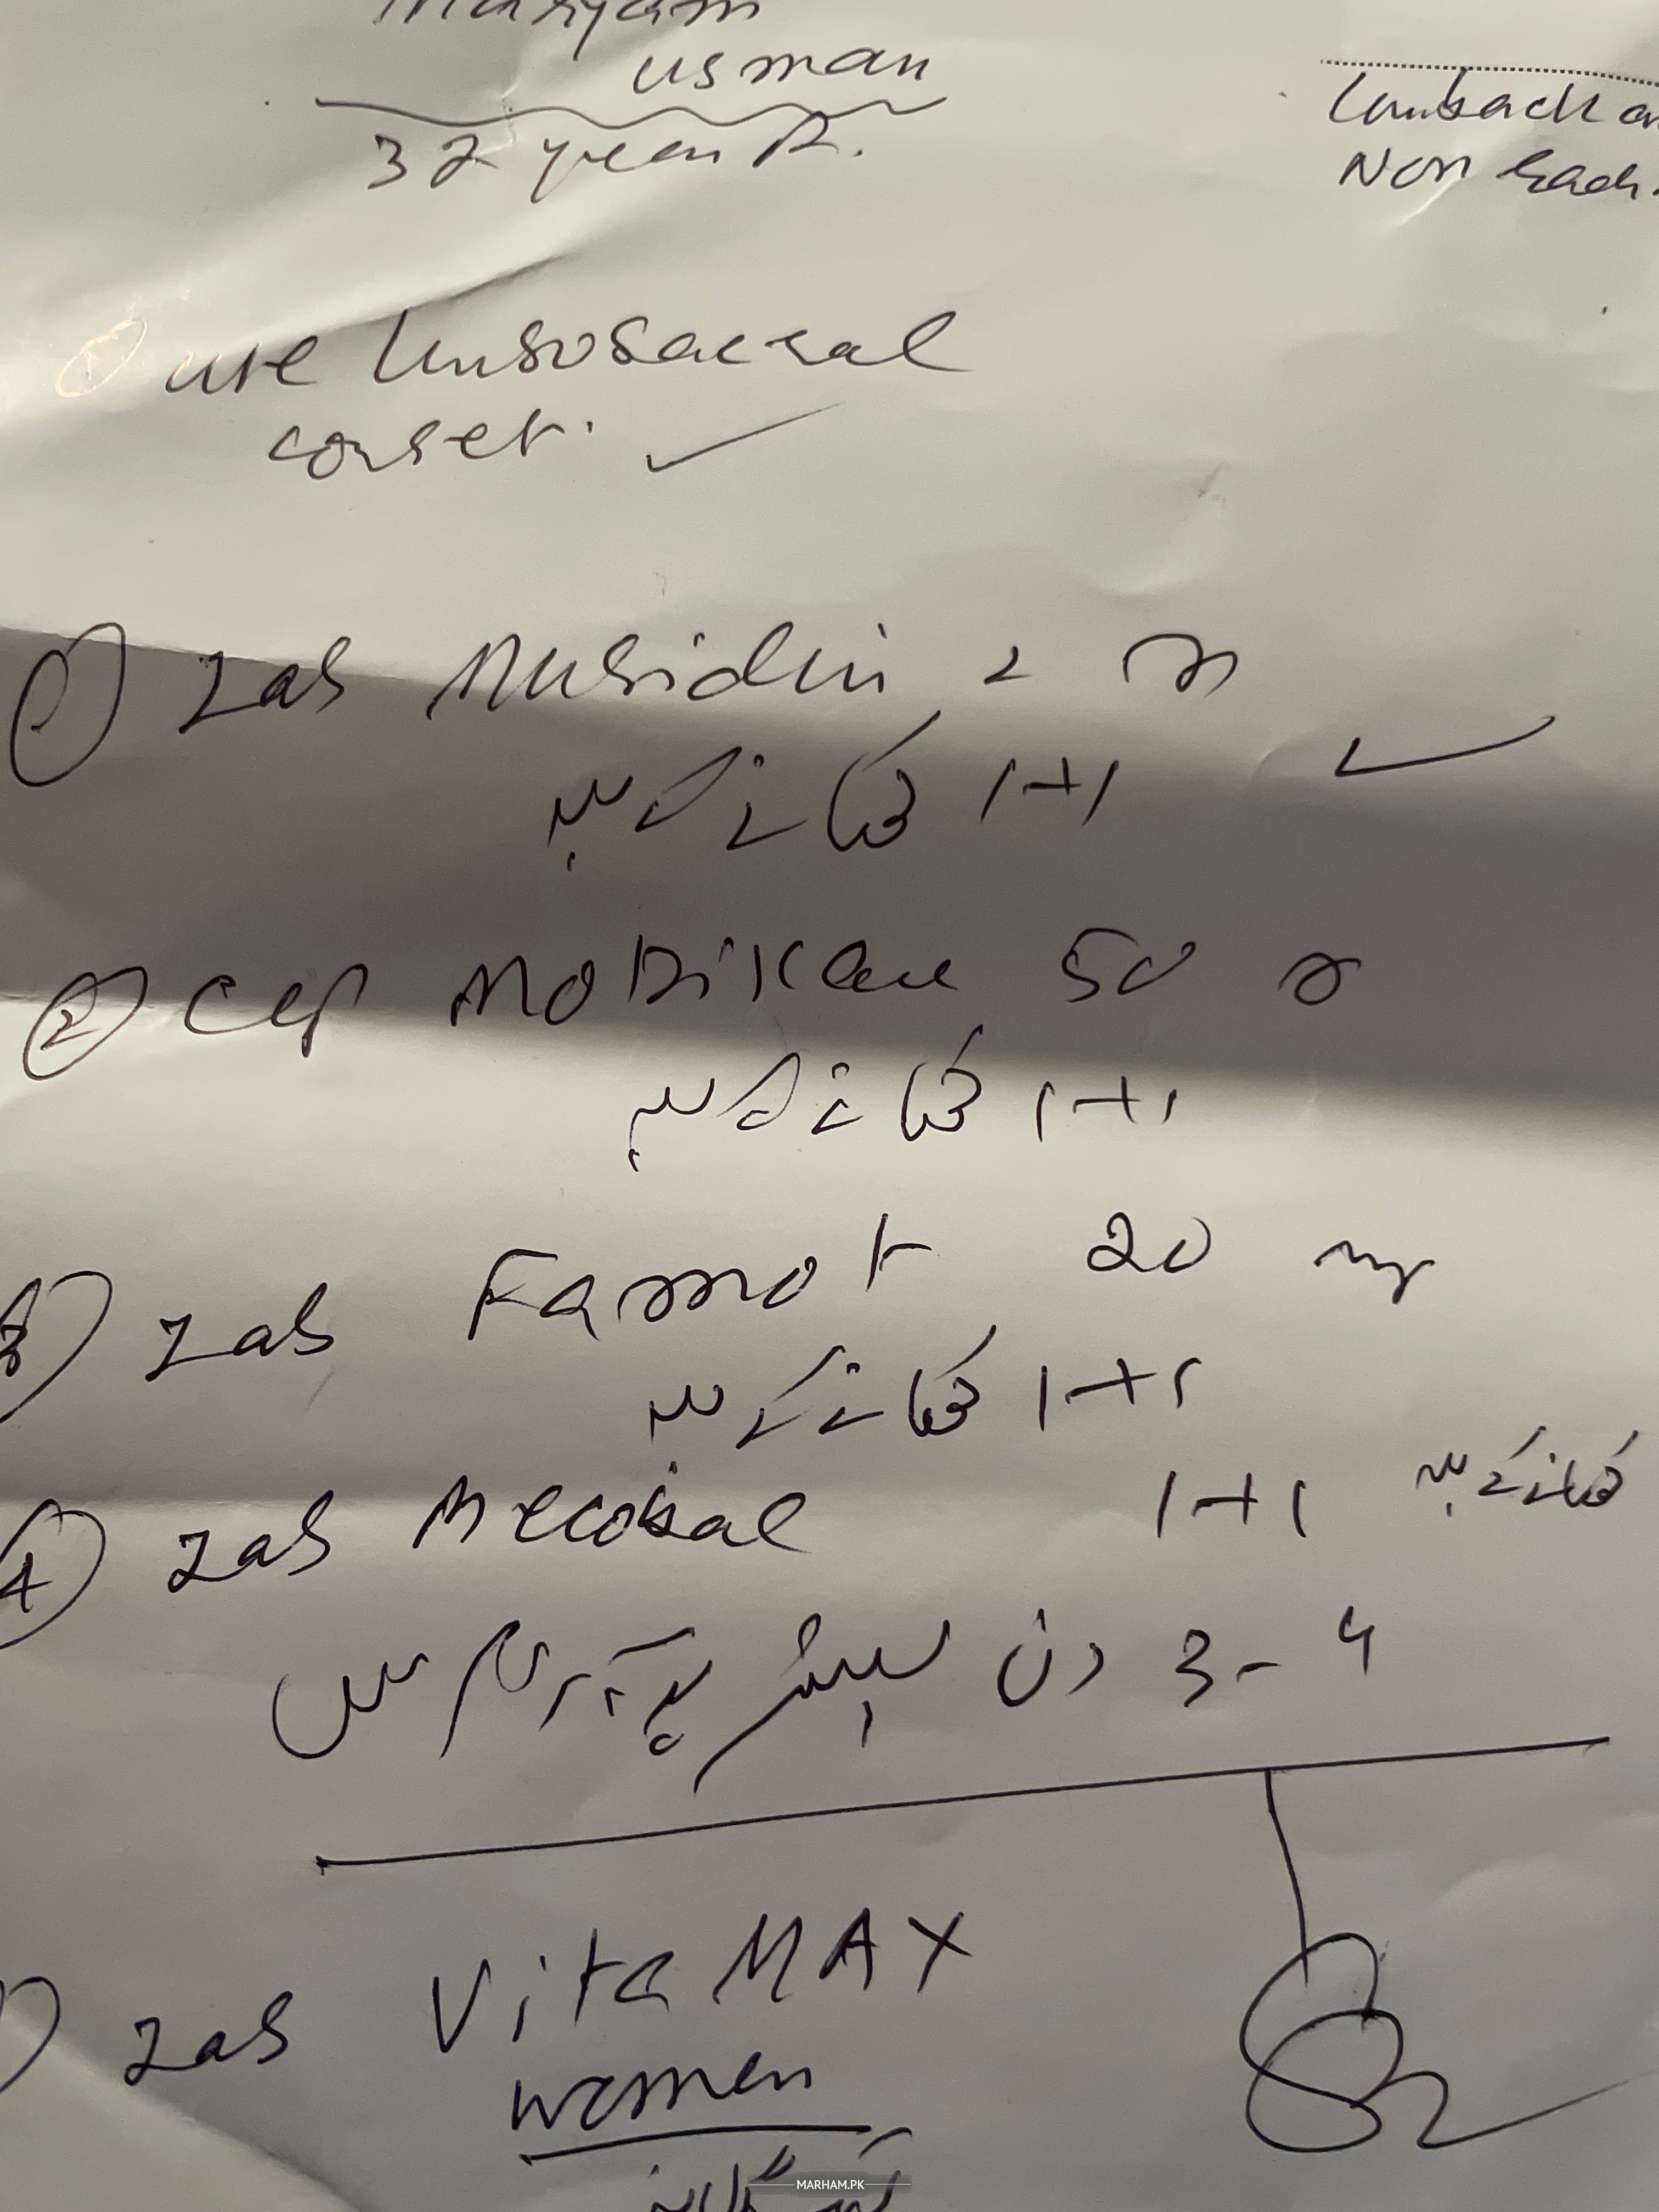 Maryam
usman
32 year
Non
use lumbosacral
corset.
1 Tab 2
1+1 کھانے کے بعد
2 Cap 50
1+1 کھانے کے بعد
3 Tab Famot 20 mg
1+1 کھانے کے بعد
4 Tab Mecobal 1+1 کھانے کے بعد
3-4 دن بستر پر آرام کریں
Tab Vita MAX
women
MARHAM.PK